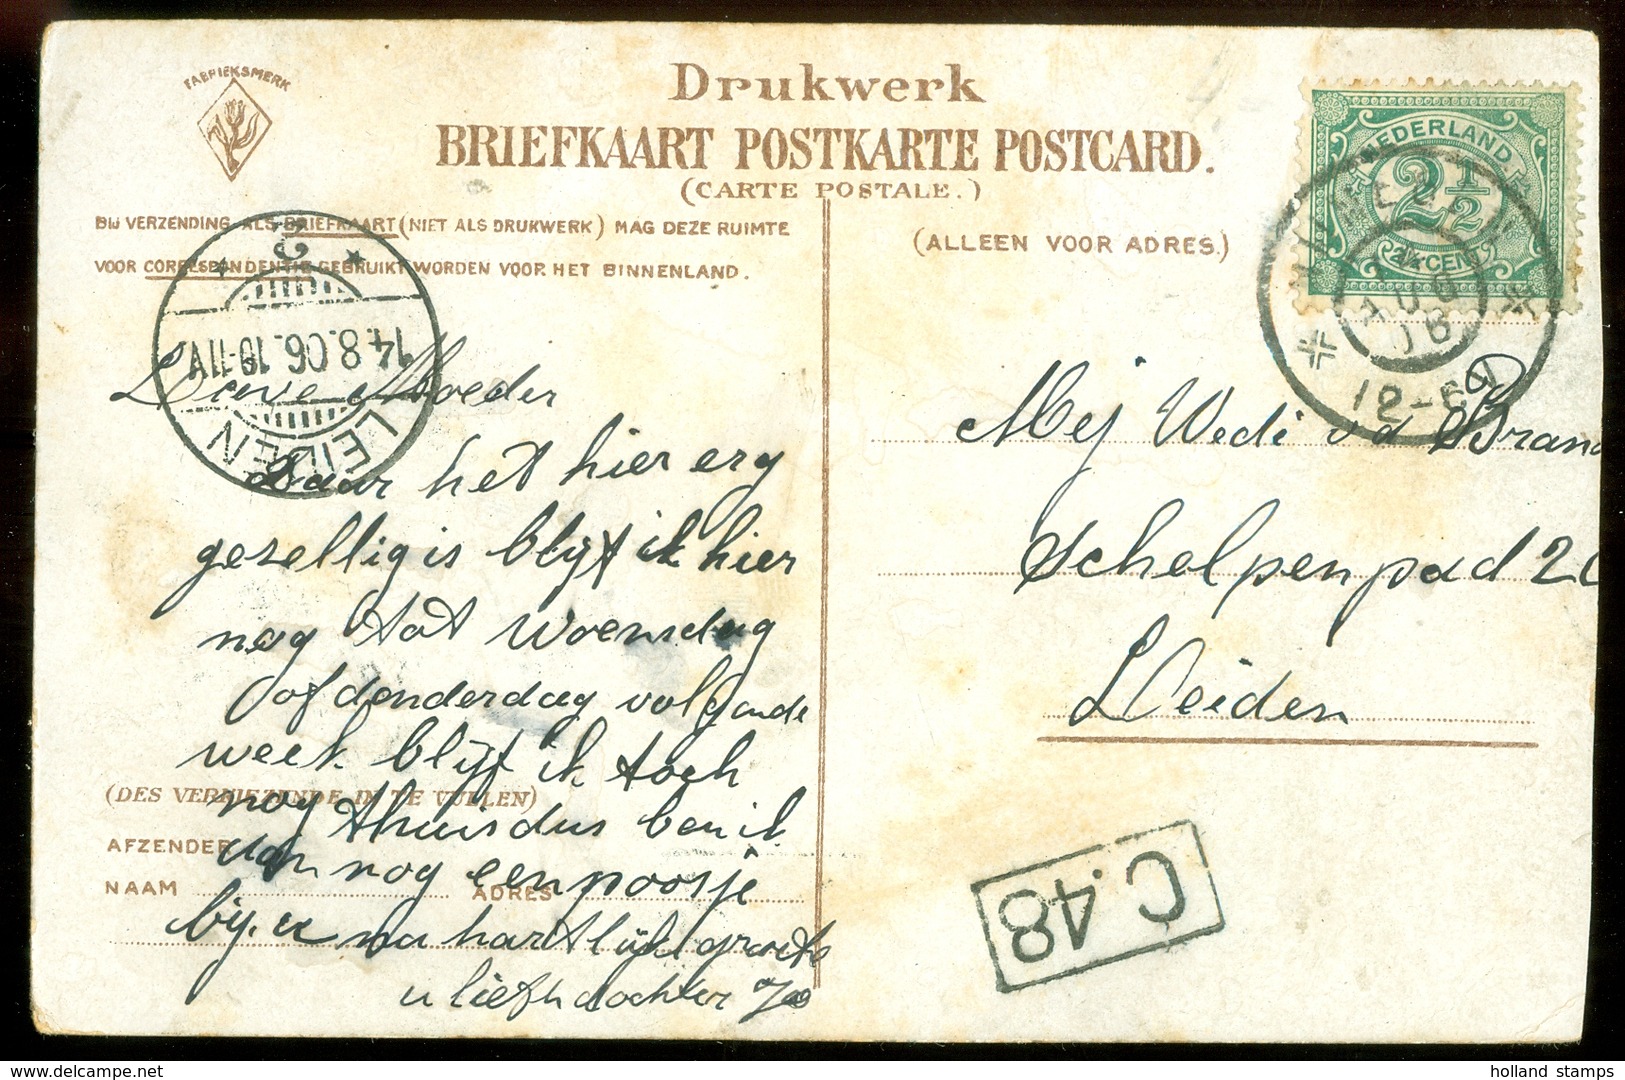 FABRIEKSMERK
Drukwerk
BRIEFKAART POSTKARTE POSTCARD.
(CARTE POSTALE.)
BIJ VERZENDING ALS BRIEFKAART (NIET ALS DRUKWERK) MAG DEZE RUIMTE
VOOR CORRESPONDENTIE GEBRUIKT WORDEN VOOR HET BINNENLAND.
(ALLEEN VOOR ADRES.)
NEDERLAND
2 1/2
2 1/2 CENT
12-6N
LEIDEN
14.8.06.10-11V
2
Lieve Moeder
Daar het hier erg
gezellig is blijf ik hier
nog tot Woensdag
of donderdag volgende
week blijf ik toch
nog thuis dus ben ik
dan nog een poosje
bij u na hartlijk groete
u liefh dochter
(DES VERKIEZENDE IN TE VULLEN)
AFZENDER
NAAM
ADRES
Mej Wedi v d Bran
Schelpenpad 20
Leiden
C.48
https://www.delcampe.net
holland stamps